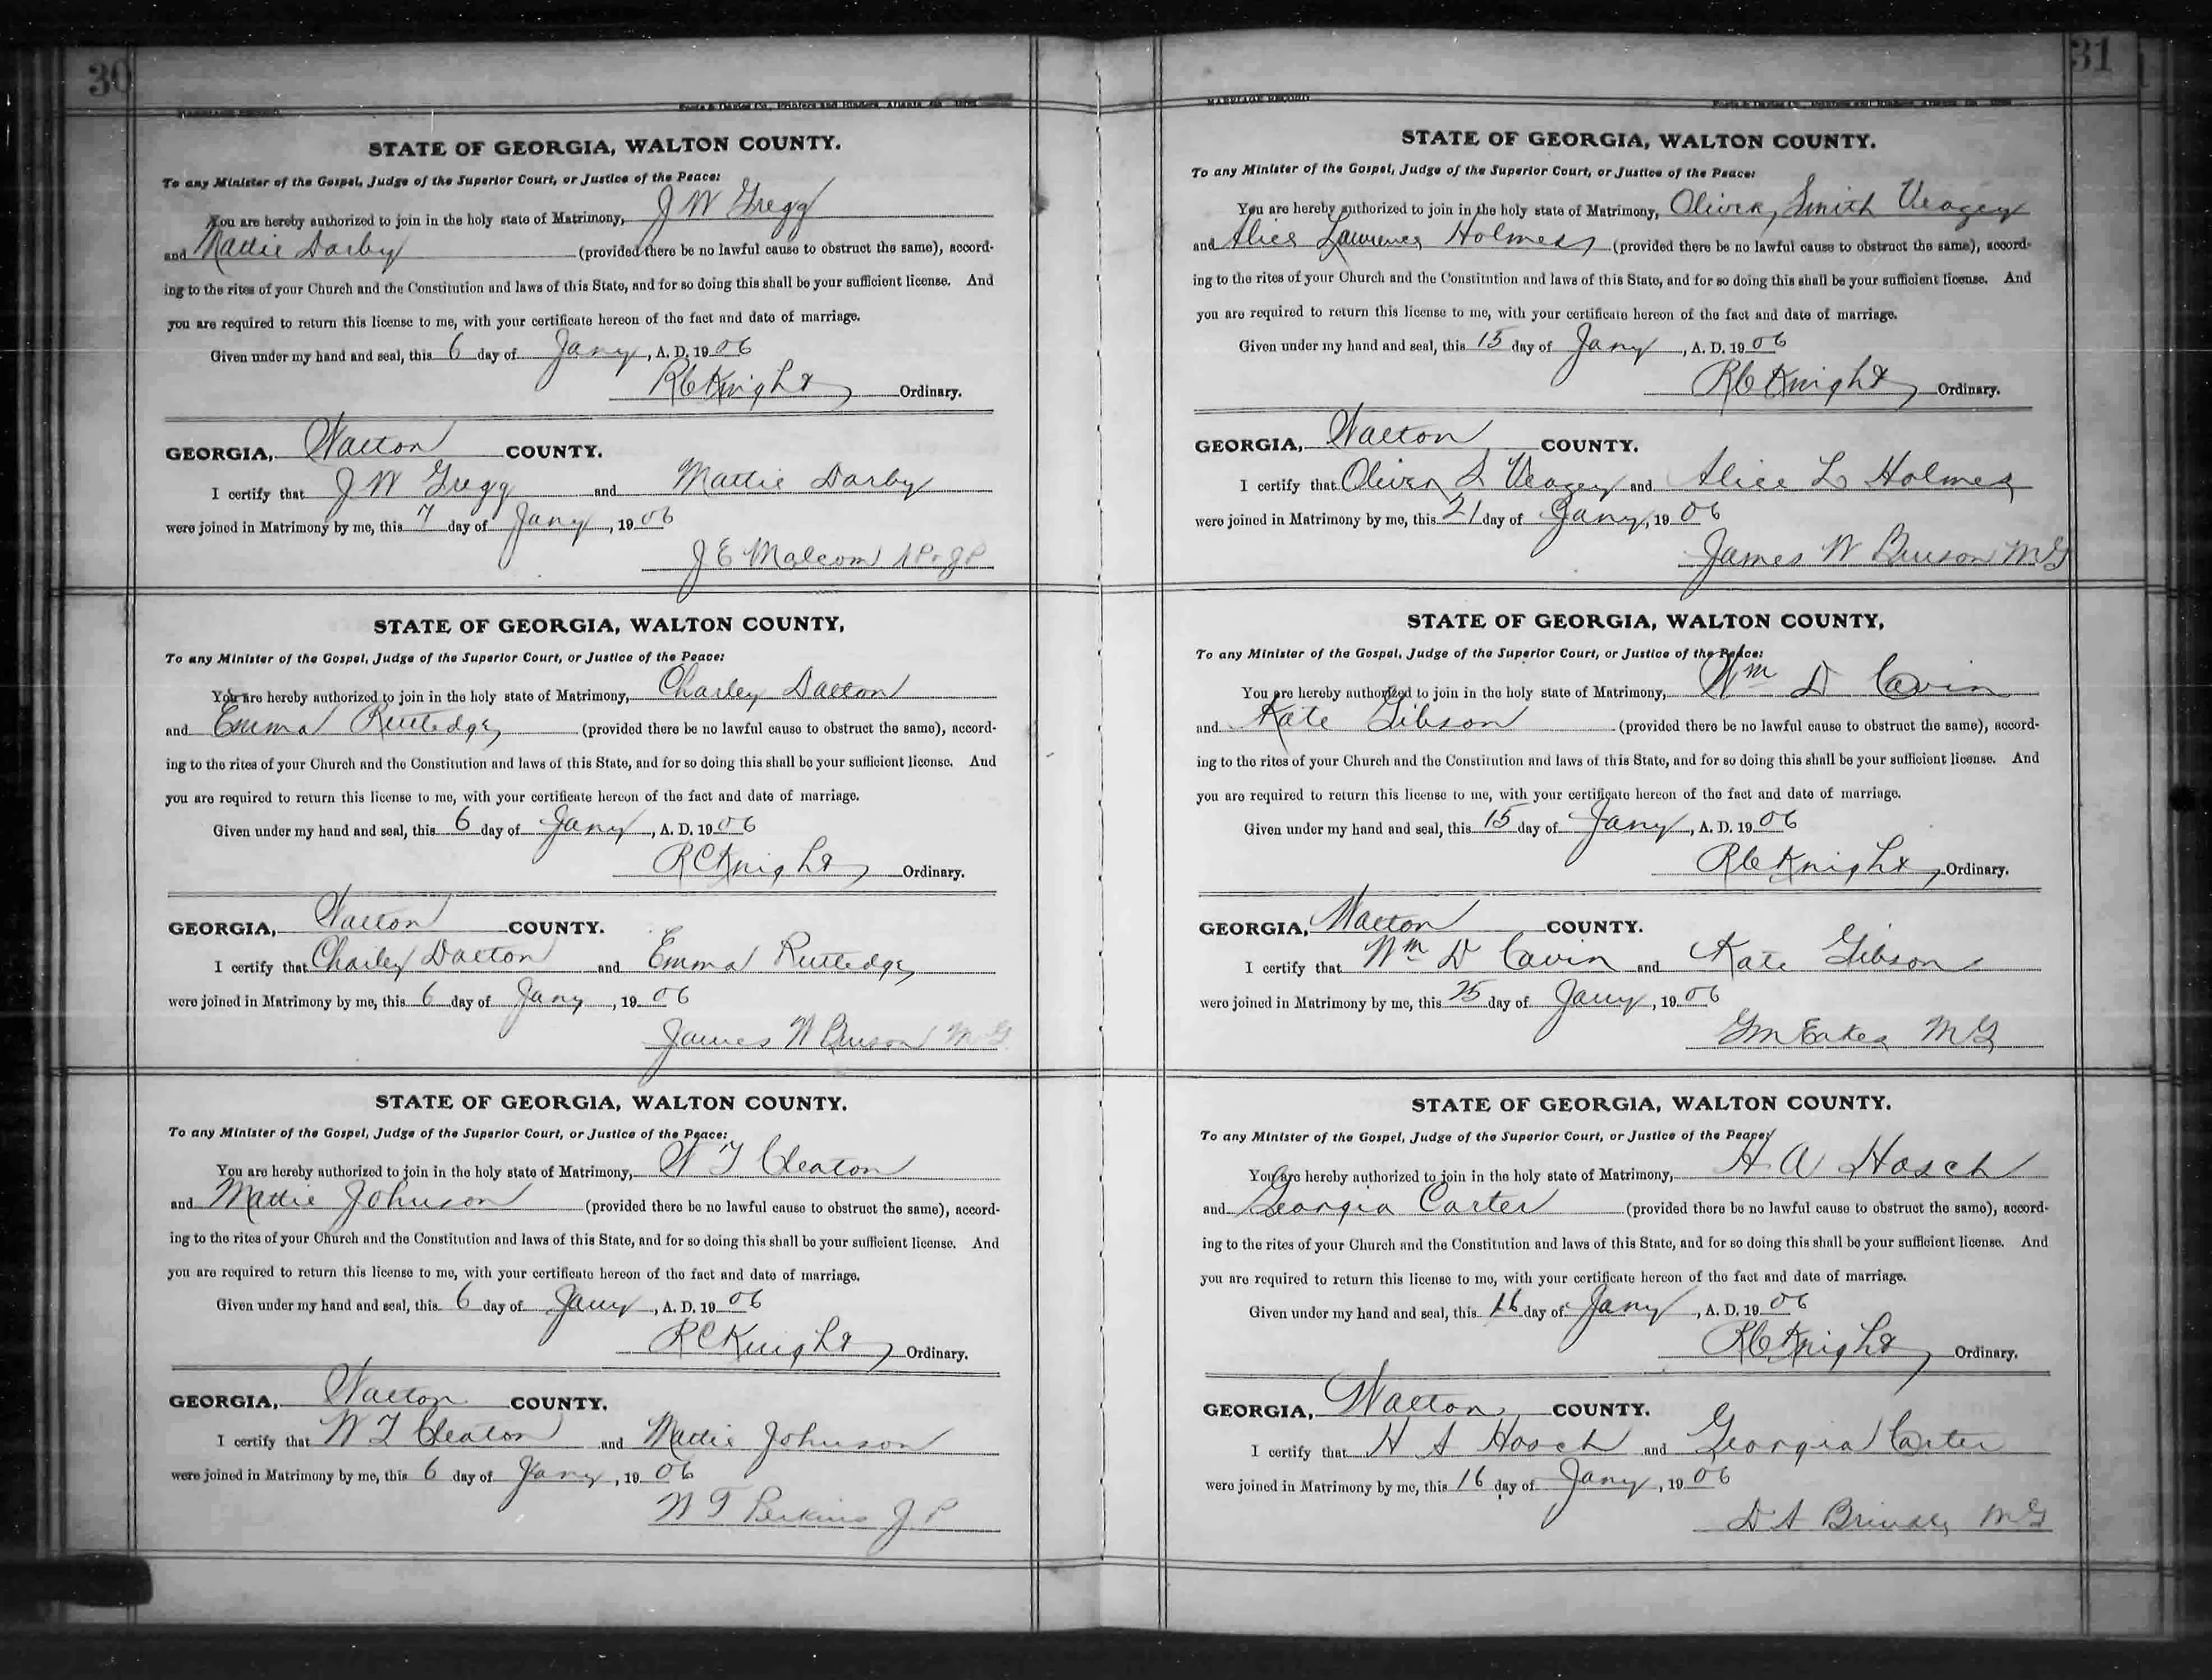 30
MARRIAGE RECORD
Foote & Davies Co., Printers and Binders, Atlanta, Ga.
STATE OF GEORGIA, WALTON COUNTY.
To any Minister of the Gospel, Judge of the Superior Court, or Justice of the Peace:
You are hereby authorized to join in the holy state of Matrimony, J W Gregg
and Mattie Darby (provided there be no lawful cause to obstruct the same), accord-
ing to the rites of your Church and the Constitution and laws of this State, and for so doing this shall be your sufficient license. And
you are required to return this license to me, with your certificate hereon of the fact and date of marriage.
Given under my hand and seal, this 6 day of Jany, A. D. 1906
R C Knight Ordinary.
GEORGIA, Walton COUNTY.
I certify that J W Gregg and Mattie Darby
were joined in Matrimony by me, this 7 day of Jany, 1906
J E Malcom J P
STATE OF GEORGIA, WALTON COUNTY,
To any Minister of the Gospel, Judge of the Superior Court, or Justice of the Peace:
You are hereby authorized to join in the holy state of Matrimony, Charley Dalton
and Emma Rutledge (provided there be no lawful cause to obstruct the same), accord-
ing to the rites of your Church and the Constitution and laws of this State, and for so doing this shall be your sufficient license. And
you are required to return this license to me, with your certificate hereon of the fact and date of marriage.
Given under my hand and seal, this 6 day of Jany, A. D. 1906
R C Knight Ordinary.
GEORGIA, Walton COUNTY.
I certify that Charley Dalton and Emma Rutledge
were joined in Matrimony by me, this 6 day of Jany, 1906
James W Burson M G
STATE OF GEORGIA, WALTON COUNTY.
To any Minister of the Gospel, Judge of the Superior Court, or Justice of the Peace:
You are hereby authorized to join in the holy state of Matrimony, W T Cleaton
and Mattie Johnson (provided there be no lawful cause to obstruct the same), accord-
ing to the rites of your Church and the Constitution and laws of this State, and for so doing this shall be your sufficient license. And
you are required to return this license to me, with your certificate hereon of the fact and date of marriage.
Given under my hand and seal, this 6 day of Jany, A. D. 1906
R C Knight Ordinary.
GEORGIA, Walton COUNTY.
I certify that W T Cleaton and Mattie Johnson
were joined in Matrimony by me, this 6 day of Jany, 1906
W T Perkins J P
31
MARRIAGE RECORD
Foote & Davies Co., Printers and Binders, Atlanta, Ga.
STATE OF GEORGIA, WALTON COUNTY.
To any Minister of the Gospel, Judge of the Superior Court, or Justice of the Peace:
You are hereby authorized to join in the holy state of Matrimony, Oliver Smith Veazey
and Alice Lawrence Holmes (provided there be no lawful cause to obstruct the same), accord-
ing to the rites of your Church and the Constitution and laws of this State, and for so doing this shall be your sufficient license. And
you are required to return this license to me, with your certificate hereon of the fact and date of marriage.
Given under my hand and seal, this 15 day of Jany, A. D. 1906
R C Knight Ordinary.
GEORGIA, Walton COUNTY.
I certify that Oliver S Veazey and Alice L Holmes
were joined in Matrimony by me, this 21 day of Jany, 1906
James W Burson M G
STATE OF GEORGIA, WALTON COUNTY,
To any Minister of the Gospel, Judge of the Superior Court, or Justice of the Peace:
You are hereby authorized to join in the holy state of Matrimony, Wm D Cavin
and Kate Gibson (provided there be no lawful cause to obstruct the same), accord-
ing to the rites of your Church and the Constitution and laws of this State, and for so doing this shall be your sufficient license. And
you are required to return this license to me, with your certificate hereon of the fact and date of marriage.
Given under my hand and seal, this 15 day of Jany, A. D. 1906
R C Knight Ordinary.
GEORGIA, Walton COUNTY.
I certify that Wm D Cavin and Kate Gibson
were joined in Matrimony by me, this 25 day of Jany, 1906
G M Eakes M G
STATE OF GEORGIA, WALTON COUNTY.
To any Minister of the Gospel, Judge of the Superior Court, or Justice of the Peace:
You are hereby authorized to join in the holy state of Matrimony, H A Hosch
and Georgia Carter (provided there be no lawful cause to obstruct the same), accord-
ing to the rites of your Church and the Constitution and laws of this State, and for so doing this shall be your sufficient license. And
you are required to return this license to me, with your certificate hereon of the fact and date of marriage.
Given under my hand and seal, this 16 day of Jany, A. D. 1906
R C Knight Ordinary.
GEORGIA, Walton COUNTY.
I certify that H A Hosch and Georgia Carter
were joined in Matrimony by me, this 16 day of Jany, 1906
D A M G